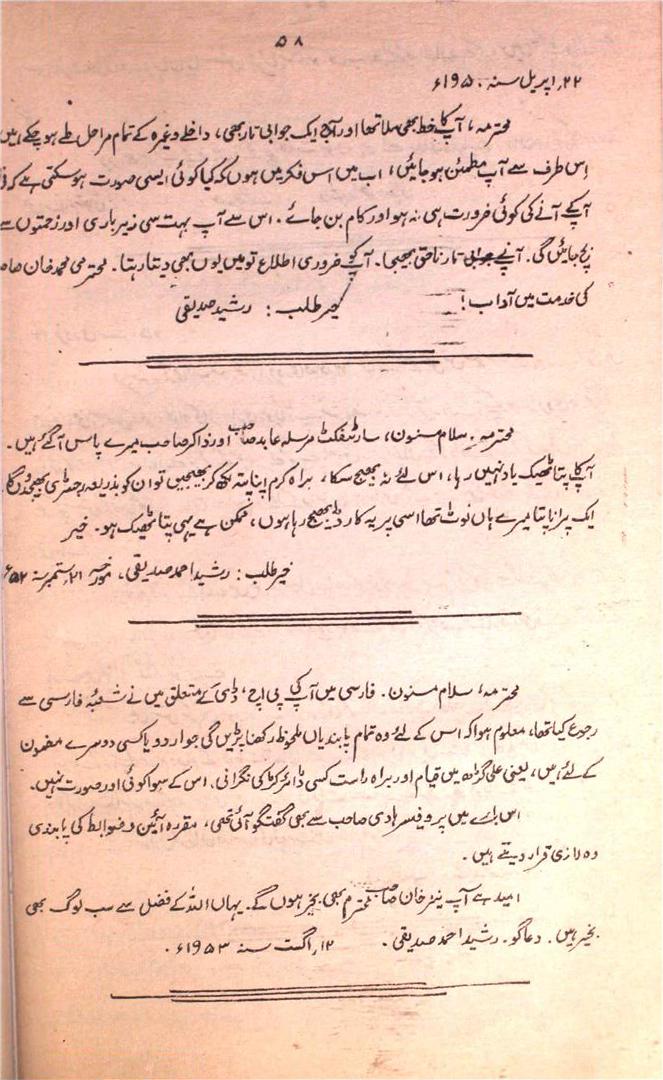 ۵۸
۲۲؍ اپریل سنہ ۱۹۵۰ء
محترمہ، آپ کا خط بھی ملا تھا اور آج ایک جوابی تار بھی، داخلے وغیرہ کے تمام مراحل طے ہو چکے ہیں
اِس طرف سے آپ مطمئن ہو جائیں، اب میں اس فکر میں ہوں کہ کیا کوئی ایسی صورت ہو سکتی ہے کہ
آپکے آنے کی کوئی ضرورت ہی نہ ہو اور کام بن جائے۔ اس سے آپ بہت سی زیر باری اور زحمتوں سے
بچ جائیں گی۔ آپنے جوابی تار ناحق بھیجا۔ آپ کو ضروری اطلاع تو میں یوں بھی دیتا رہتا۔ محترمی محمد خان
کی خدمت میں آداب!
خیر طلب: رشید صدیقی
محترمہ۔ سلام مسنون، سارٹیفکٹ مرسلہ عابد صاحب اور ذاکر صاحب میرے پاس آ گئے ہیں۔
آپ کا پتا ٹھیک یاد نہیں رہا، اس لئے نہ بھیج سکا، براہ کرم اپنا پتہ لکھ کر بھیجیں تو ان کو بذریعہ رجسٹری بھیجدوں گا
ایک پرانا پتا میرے ہاں نوٹ تھا اسی پر یہ کارڈ بھیج رہا ہوں، ممکن ہے یہی پتا ٹھیک ہو۔ خیر
خیر طلب: رشید احمد صدیقی، مورخہ ۲۱؍ ستمبر سنہ ۵۲ء
محترمہ، سلام مسنون۔ فارسی میں آپ کی پی ایچ، ڈی کے متعلق میں نے شعبۂ فارسی سے
رجوع کیا تھا، معلوم ہوا کہ اس کے لئے وہ تمام پابندیاں ملحوظ رکھنا پڑیں گی جو اردو یا کسی دوسرے مضمون
کے لئے ہیں، یعنی علی گڑھ میں قیام اور براہ راست کسی ڈائرکٹر کی نگرانی۔ اس کے سوا کوئی اور صورت نہیں۔
اس بارے میں پروفیسر ہادی صاحب سے بھی گفتگو آئی تھی، مقررہ آئین و ضوابط کی پابندی
وہ لازمی قرار دیتے ہیں۔
امید ہے آپ نیز خان صاحب محترم بھی بخیر ہوں گے۔ یہاں اللہ کے فضل سے سب لوگ بھی
بخیر ہیں۔ دعا گو۔ رشید احمد صدیقی۔ ۱۲؍ اگست سنہ ۱۹۵۳ء۔